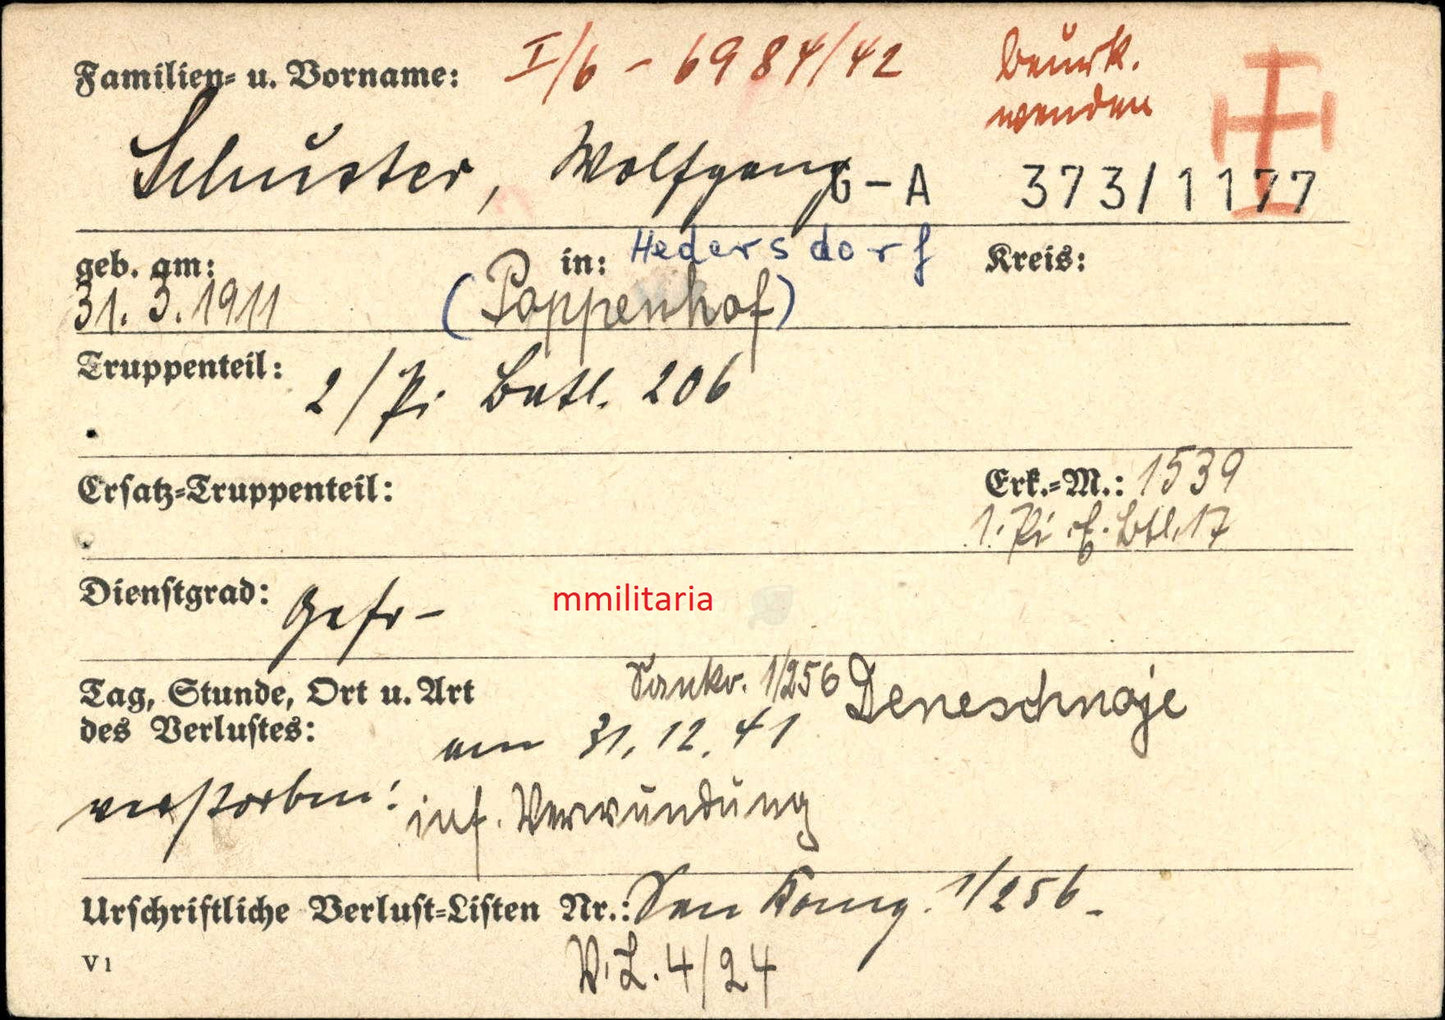 Familien- u. Vorname: I/6 - 6984/42 beurk.
wenden
Schuster, Wolfgang G-A 373/1177
geb. am: in: Hedersdorf Kreis:
31. 3. 1911 (Poppenhof)
Truppenteil: 2/Pi Batl. 206
Ersatz-Truppenteil: Erk.-M.: 1539
1. Pi. E. Btl. 17
Dienstgrad: Gefr-
mmilitaria
Tag, Stunde, Ort u. Art Sankr. 1/256 Deneschnoje
des Verlustes: am 31.12.41
verstorben! inf. Verwundung
Urschriftliche Verlust-Listen Nr.: San Komp. 1/256-
V.L. 4/24
V 1